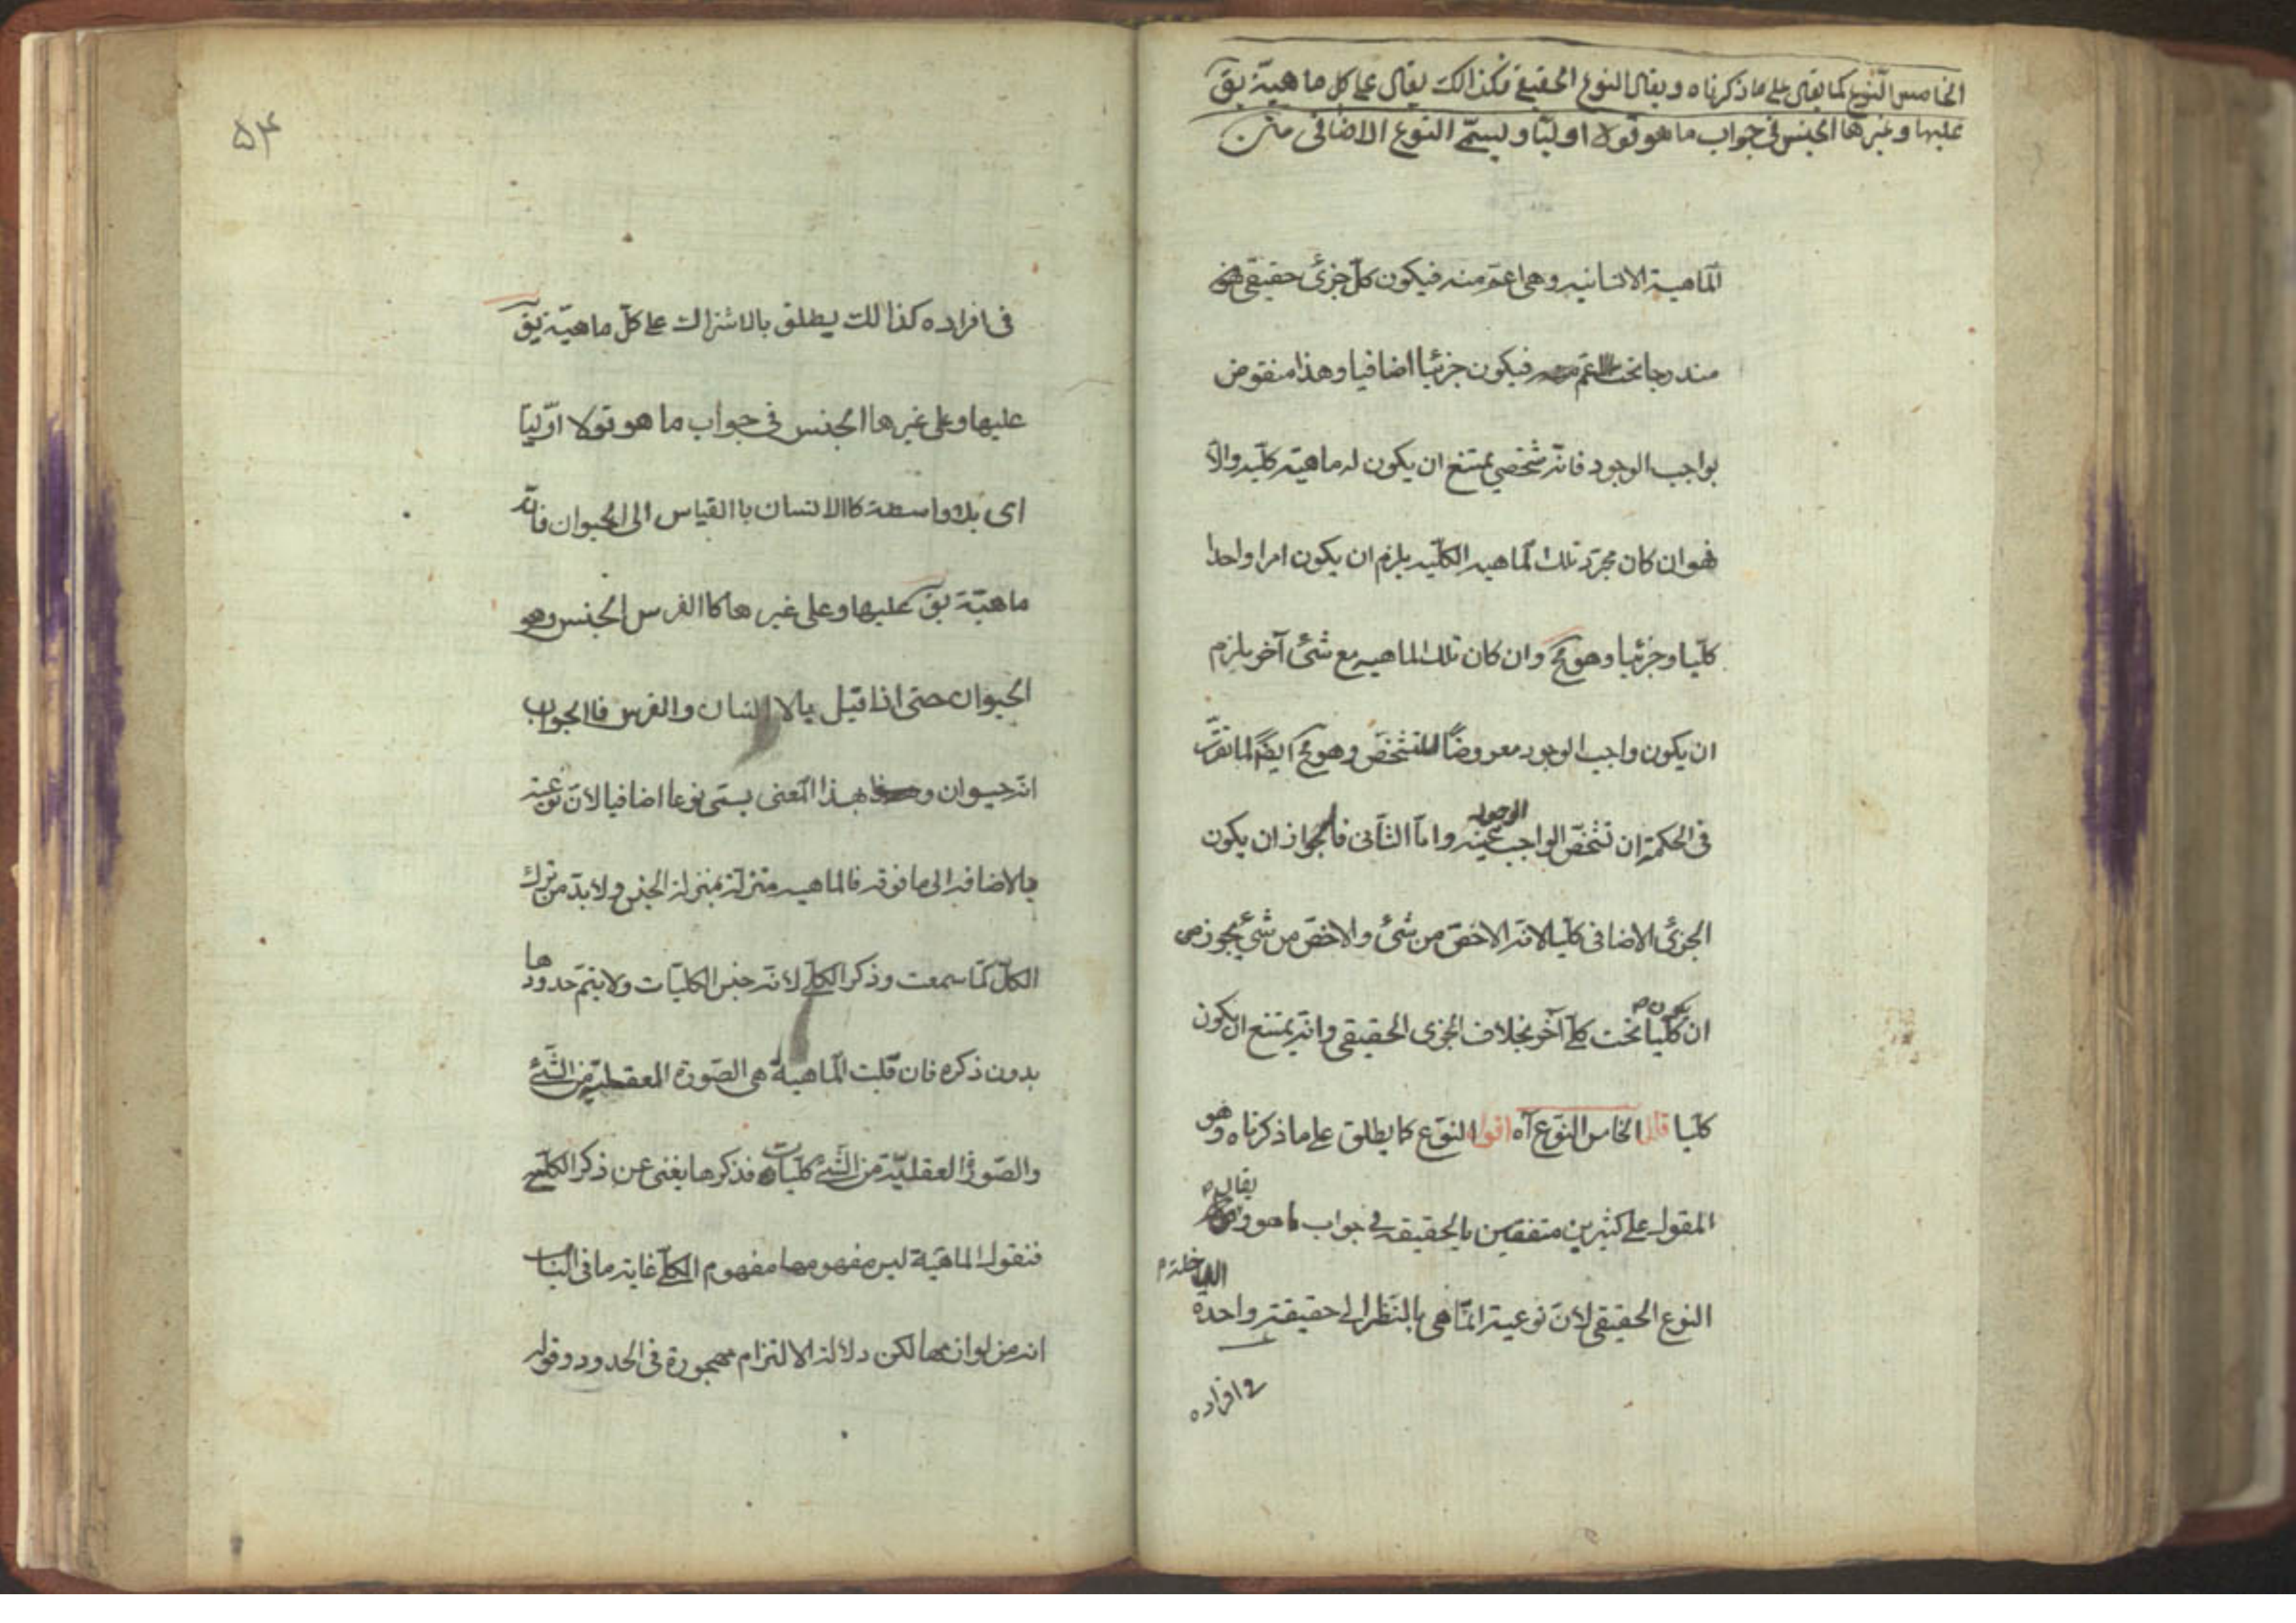 الخامس النوع كما يقال على ما ذكرناه ويقال النوع الحقيقي فكذالك يقال على كل ماهية يق
عليها وغيرها الجنس في جواب ما هو قولا اوليا ويسمّى النوع الاضافى متن
الماهية الانسانيه وهى اعم منه فيكون كل جزئ حقيقى
مندرجا تحت اعم فيكون جزئيا اضافيا وهذا منقوض
بواجب الوجود فانه شخصي يمتنع ان يكون له ماهية كليه والا
فهو ان كان مجرد تلك الماهيه الكليه يلزم ان يكون امرا واحدا
كليا وجزئيا وهو مح وان كان تلك الماهيه مع شئ آخر يلزم
ان يكون واجب الوجود معروضا للتشخص وهو مح ايضا لما تقرر
في الحكمة ان تشخص الواجب الوجود عينه واما الثانى فلجواز ان يكون
الجزئ الاضافى كليا لانه الاخص من شئ والاخص من شئ يجوز
ان يكون كليا تحت كلى آخر بخلاف الجزى الحقيقى وانه يمتنع ان يكون
كليا قال الخامس النوع آه اقول النوع كما يطلق على ما ذكرناه وهو
المقول على كثيرين متفقين بالحقيقه في جواب ما هو يقال له
النوع الحقيقى لان نوعيته انما هى بالنظر الى حقيقته واحدة
فى افراده
۵۴
فى افراده كذالك يطلق بالاشتراك على كل ماهيّة يق
عليها وعلى غيرها الجنس فى جواب ما هو قولا اوّليا
اى بلا واسطة كاالانسان باالقياس الى الحيوان فانه
ماهيّة يق عليها وعلى غيرها كاالفرس الجنس وهو
الحيوان حتى اذا قيل مالانسان والفرس فاالجواب
انه حيوان وهذا المعنى يسمى نوعا اضافيا لان نوعيته
بالاضافه الى ما فوقه فالماهيه منزلة بمنزلة الجنس ولا بد من ترك
الكل كما سمعت وذكر الكلى لانه جنس الكليات ولا يتم حدودها
بدون ذكره فان قلت الماهية هى الصورة المعقليه من الشئ
والصور العقليّة من الشئ كليات فذكرها يغنى عن ذكر الكلى
فنقول الماهيّة ليس مفهومها مفهوم الكلى غاية ما فى الباب
انه من لوازمها لكن دلالة الالتزام مهجورة فى الحدود وقوله